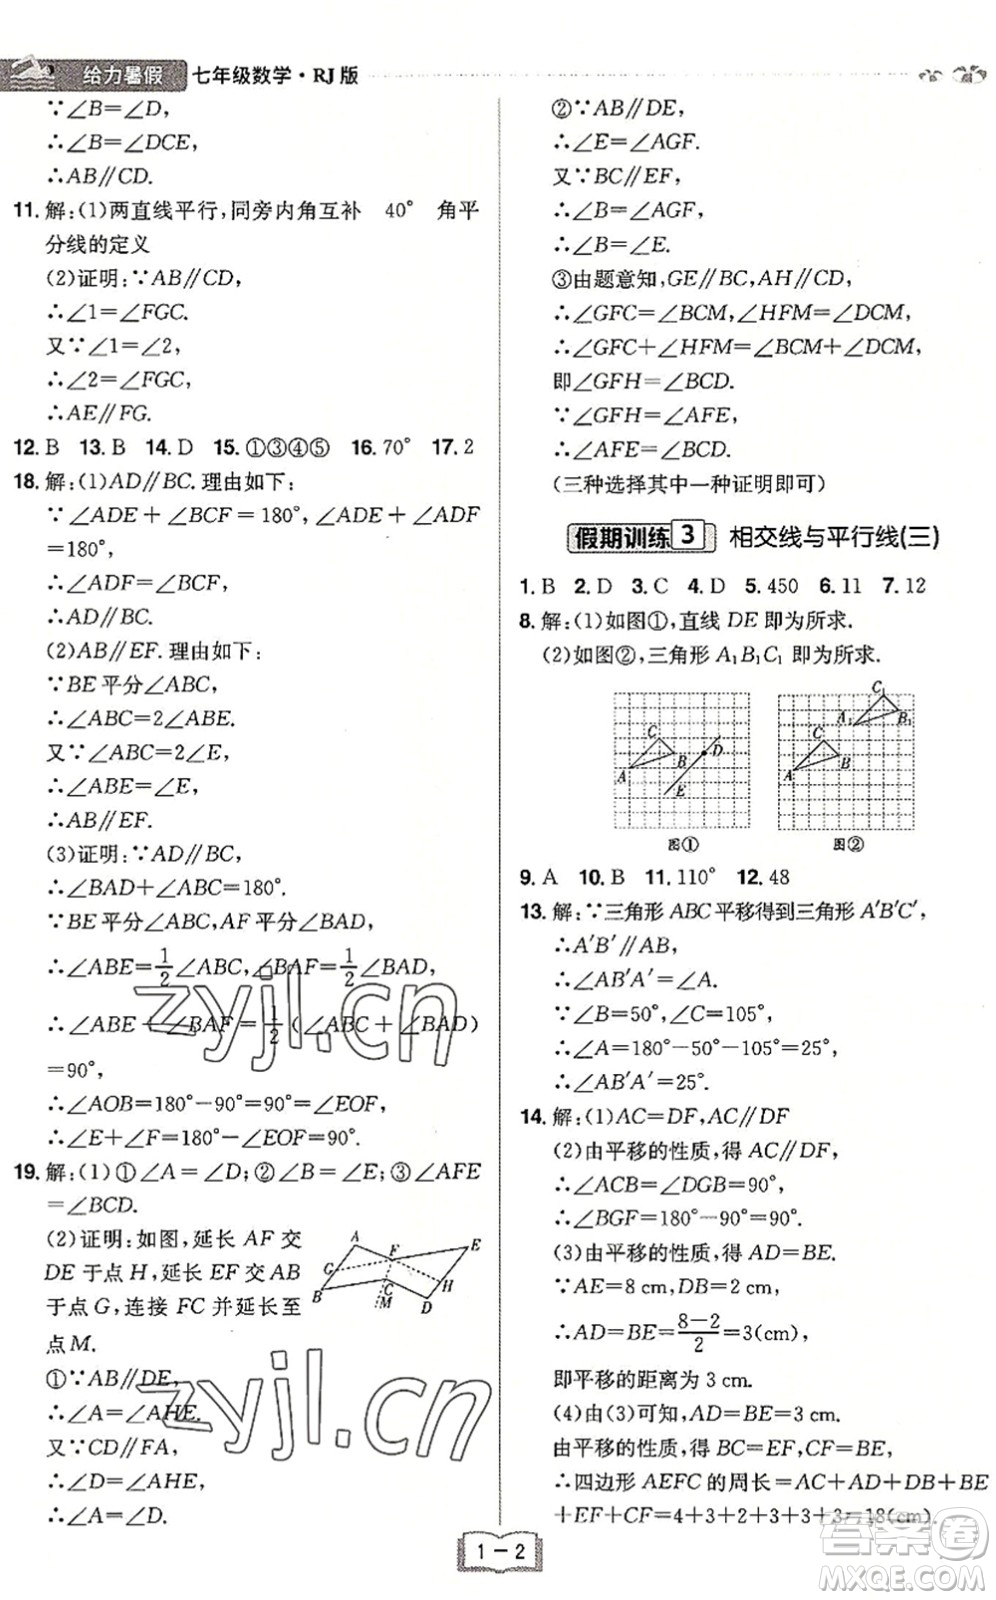 给力暑假 七年级数学·RJ版
∵∠B=∠D,
∴∠B=∠DCE,
∴AB∥CD.
11. 解:(1)两直线平行,同旁内角互补 40° 角平
分线的定义
(2)证明:∵AB∥CD,
∴∠1=∠FGC.
又∵∠1=∠2,
∴∠2=∠FGC,
∴AE∥FG.
12. B 13. B 14. D 15. ①③④⑤ 16. 70° 17. 2
18. 解:(1)AD∥BC.理由如下:
∵∠ADE+∠BCF=180°,∠ADE+∠ADF
=180°,
∴∠ADF=∠BCF,
∴AD∥BC.
(2)AB∥EF.理由如下:
∵BE平分∠ABC,
∴∠ABC=2∠ABE.
又∵∠ABC=2∠E,
∴∠ABE=∠E,
∴AB∥EF.
(3)证明:∵AD∥BC,
∴∠BAD+∠ABC=180°.
∵BE平分∠ABC,AF平分∠BAD,
∴∠ABE=1/2∠ABC,∠BAF=1/2∠BAD,
∴∠ABE+∠BAF=1/2(∠ABC+∠BAD)
=90°,
∴∠AOB=180°-90°=90°=∠EOF,
∴∠E+∠F=180°-∠EOF=90°.
19. 解:(1)①∠A=∠D;②∠B=∠E;③∠AFE
=∠BCD.
(2)证明:如图,延长AF交
DE于点H,延长EF交AB
于点G,连接FC并延长至
点M.
A F E G B C H M D
①∵AB∥DE,
∴∠A=∠AHE.
又∵CD∥FA,
∴∠D=∠AHE,
∴∠A=∠D.
②∵AB∥DE,
∴∠E=∠AGF.
又∵BC∥EF,
∴∠B=∠AGF,
∴∠B=∠E.
③由题意知,GE∥BC,AH∥CD,
∴∠GFC=∠BCM,∠HFM=∠DCM,
∴∠GFC+∠HFM=∠BCM+∠DCM,
即∠GFH=∠BCD.
∵∠GFH=∠AFE,
∴∠AFE=∠BCD.
(三种选择其中一种证明即可)
假期训练3 相交线与平行线(三)
1. B 2. D 3. C 4. D 5. 450 6. 11 7. 12
8. 解:(1)如图①,直线DE即为所求.
(2)如图②,三角形A₁B₁C₁即为所求.
A B C D E
A B C A₁ B₁ C₁
图① 图②
9. A 10. B 11. 110° 12. 48
13. 解:∵三角形ABC平移得到三角形A′B′C′,
∴A′B′∥AB,
∴∠AB′A′=∠A.
∵∠B=50°,∠C=105°,
∴∠A=180°-50°-105°=25°,
∴∠AB′A′=25°.
14. 解:(1)AC=DF,AC∥DF
(2)由平移的性质,得AC∥DF,
∴∠ACB=∠DGB=90°,
∴∠BGF=180°-90°=90°.
(3)由平移的性质,得AD=BE.
∵AE=8 cm,DB=2 cm,
∴AD=BE=(8-2)/2=3(cm),
即平移的距离为3 cm.
(4)由(3)可知,AD=BE=3 cm.
由平移的性质,得BC=EF,CF=BE,
∴四边形AEFC的周长=AC+AD+DB+BE
+EF+CF=4+3+2+3+3+3=18(cm).
1-2
zyjl.cn
zyjl.cn
答案圈
MXQE.COM